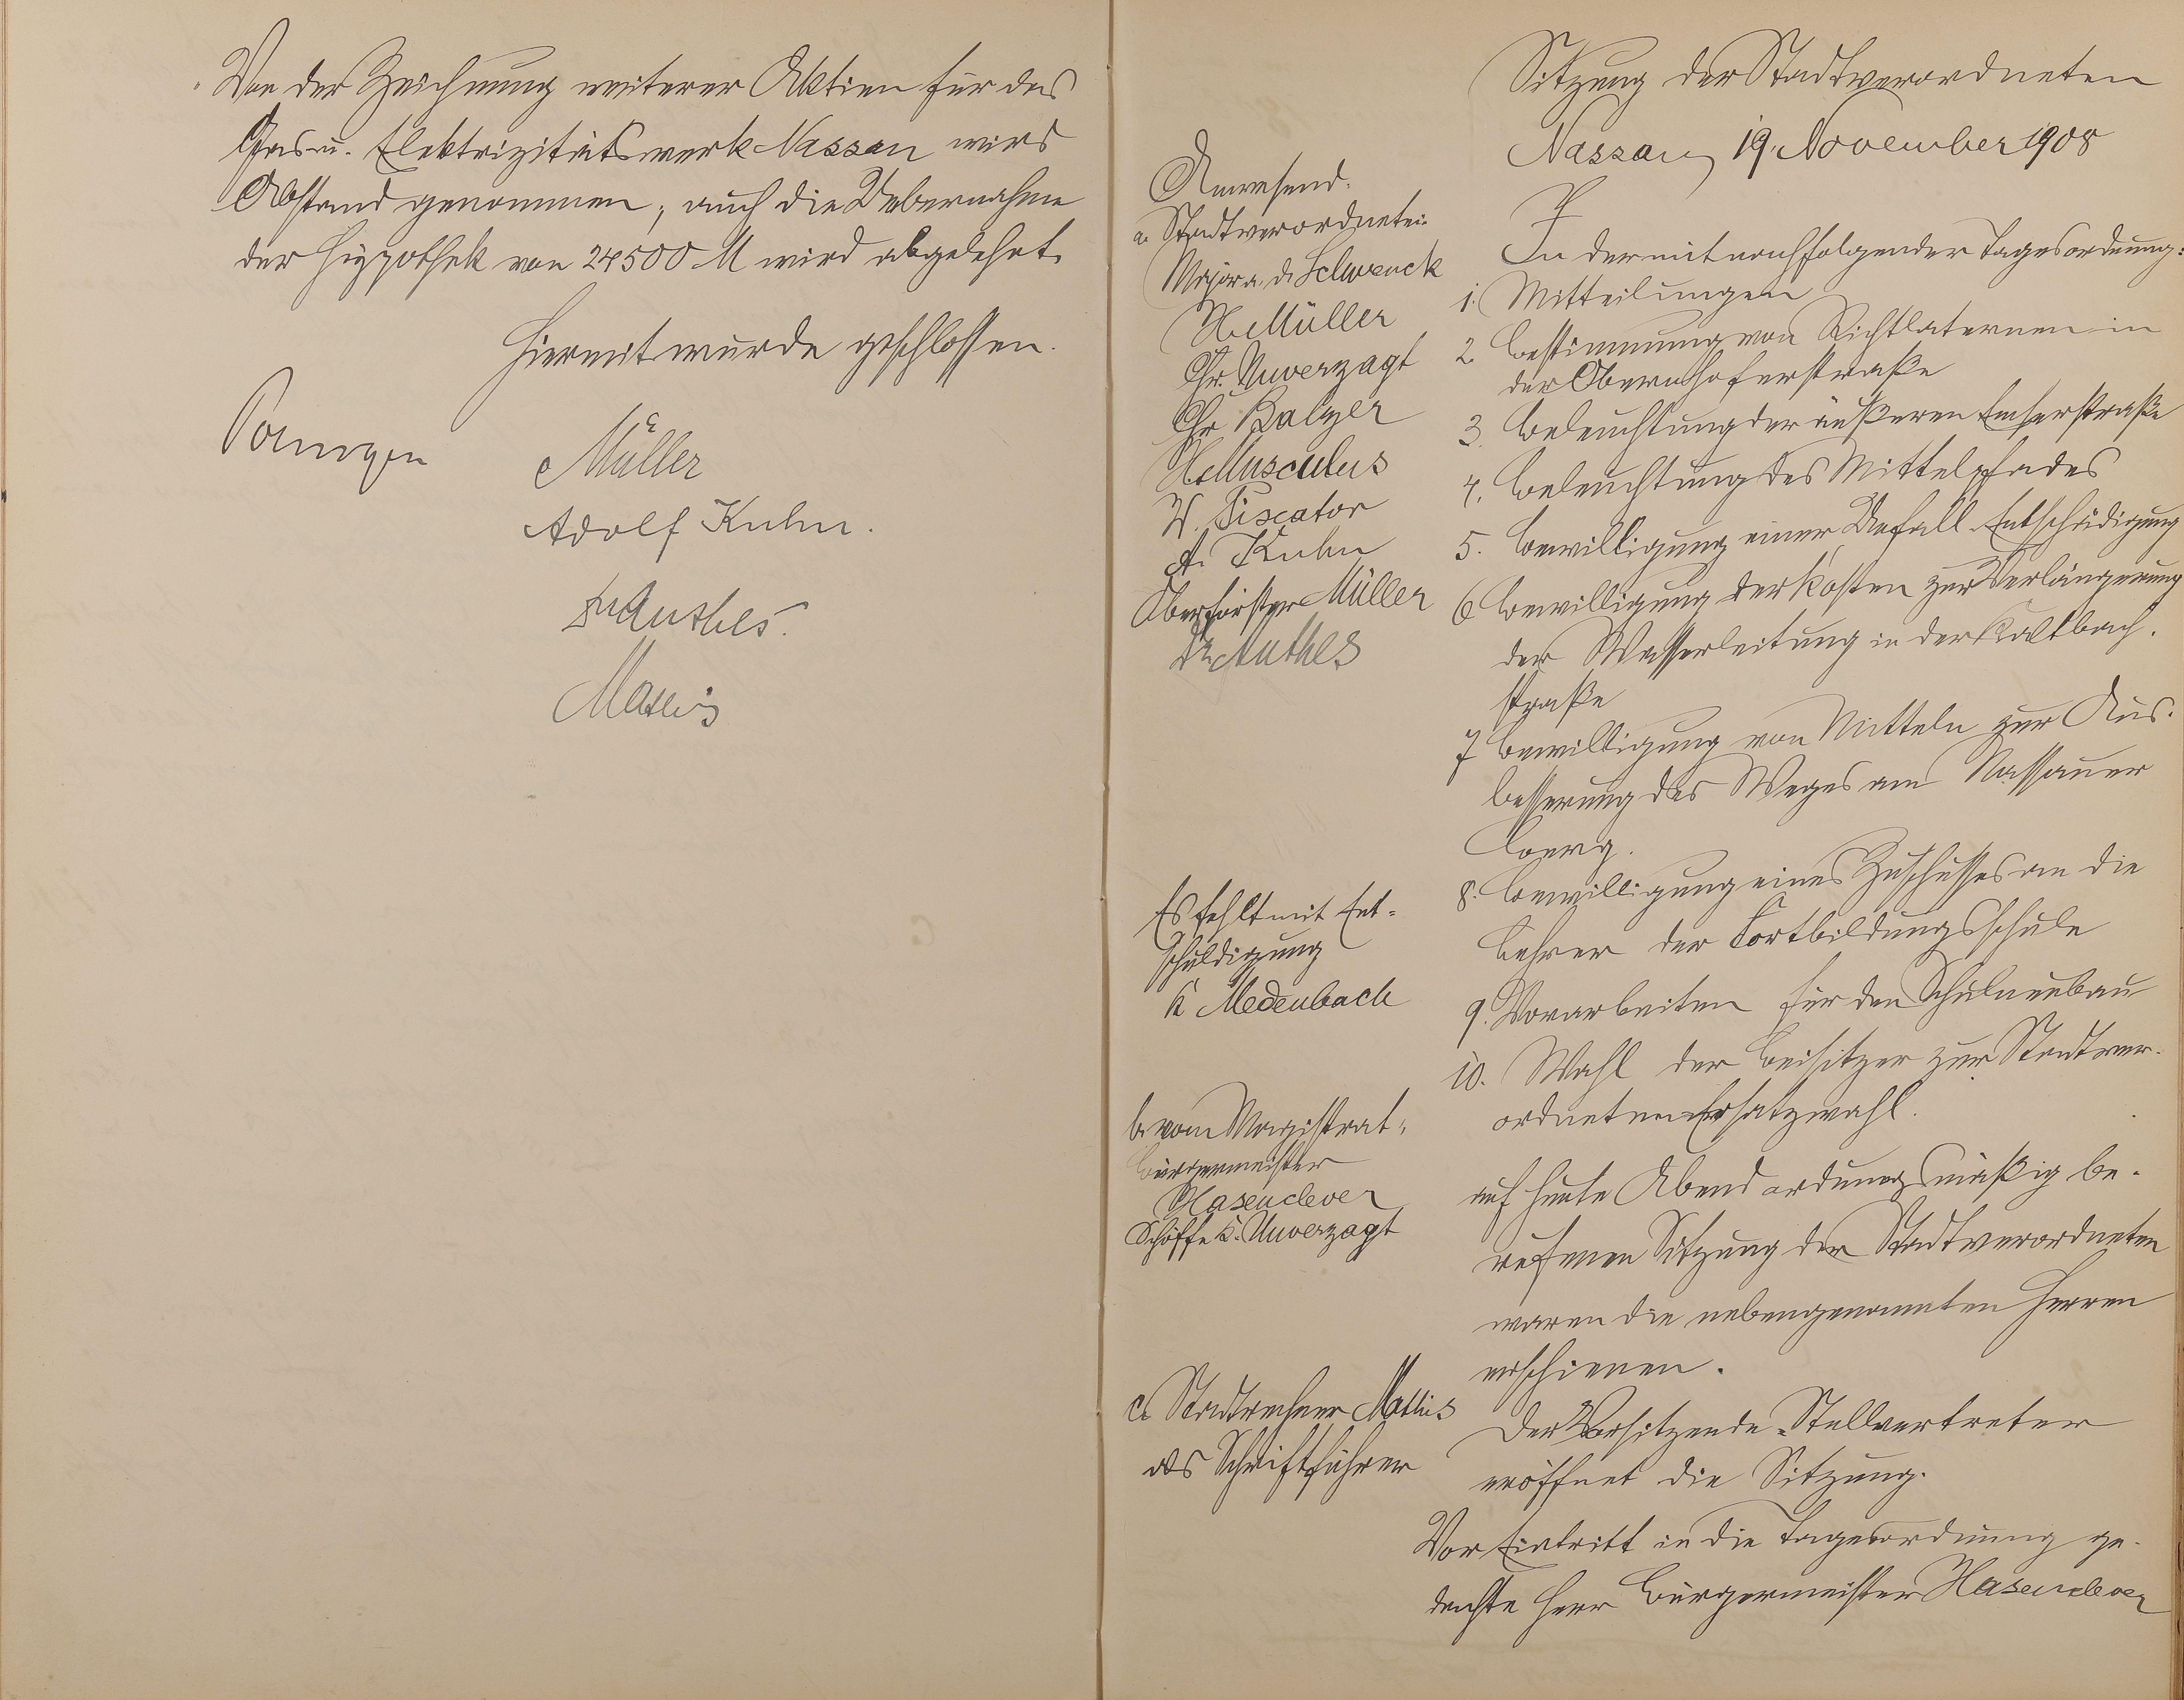 Von der Zeichnung weiterer Aktien für das
Gas- u. Elektrizitätswerk Nassau wird
Abstand genommen, auch die Uebernahme
der Hypothek von 24500 M wird abgelehnt.
Hiermit wurde geschlossen.
Müller
Adolf Kuhn.
Dr Anthes.
Mathis
Sitzung der Stadtverordneten
Nassau, 19. November 1908
Anwesend.
a. Stadtverordnete:
Major a. D. Schwenck
H. Müller
Chr. Unverzagt
Chr Balzer
H. Musculus
W. Piscator
A. Kuhn
Oberförster Müller
Dr Anthes
Es fehlt mit Ent-
schuldigung
K Medenbach
b. vom Magistrat:
Bürgermeister
Hasenclever
Schöffe K. Unverzagt
c. Stadtrechner Mathis
als Schriftführer
In der mit nachfolgender Tagesordnung:
1. Mitteilungen
2. Bestimmung von Richtlaternen in
der Obernhoferstraße
3. Beleuchtung der äußeren Emserstraße
4. Beleuchtung des Mittelpfades
5. Bewilligung einer Unfall-Entschädigung
6 Bewilligung der Kosten zur Verlängerung
der Wasserleitung in der Kaltbach-
straße
7 Bewilligung von Mitteln zur Aus-
besserung des Weges am Nassauer
Berg.
8. Bewilligung eines Zuschusses an die
Lehrer der Fortbildungsschule
9. Vorarbeiten für den Schulneubau
10. Wahl der Beisitzer zur Stadtver-
ordneten-Ersatzwahl.
auf heute Abend ordnungsmäßig be-
rufenen Sitzung der Stadtverordneten
waren die nebengenannten Herren
erschienen.
Der Vorsitzende-Stellvertreter
eröffnet die Sitzung.
Vor Eintritt in die Tagesordnung ge-
dachte Herr Bürgermeister Hasenclever